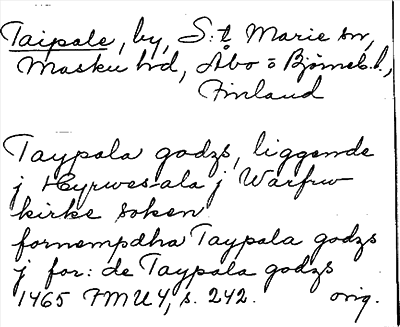 Taipale, by, S:t Marie sn,
Masku hd, Åbo o Björneb. l.,
Finland
Taypala godzs, liggende
j Hyrwesala j Warfrw
kirke soken
fornempdha Taypala godzs
j for: de Taypala godzs
1465 FMU 4, s. 242. orig.